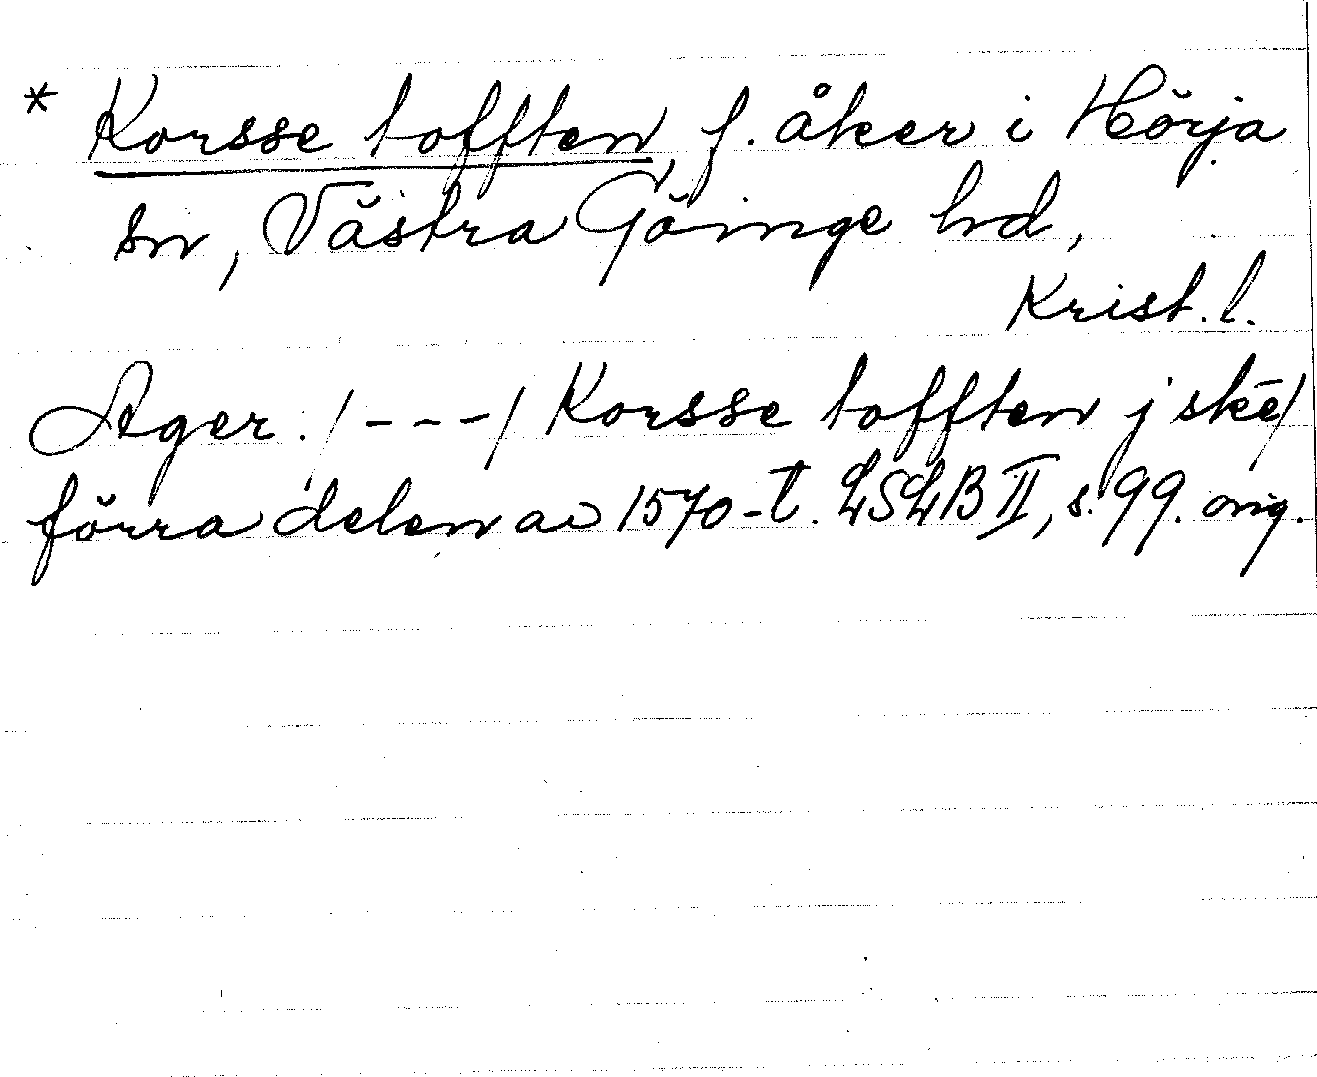 * Korsse tofften, f. åker i Hörja
sn, Västra Göinge hd,
Krist. l.
Ager. /---/ Korsse tofften j skē/
förra delen av 1570-t. LSLB II, s. 99. orig.